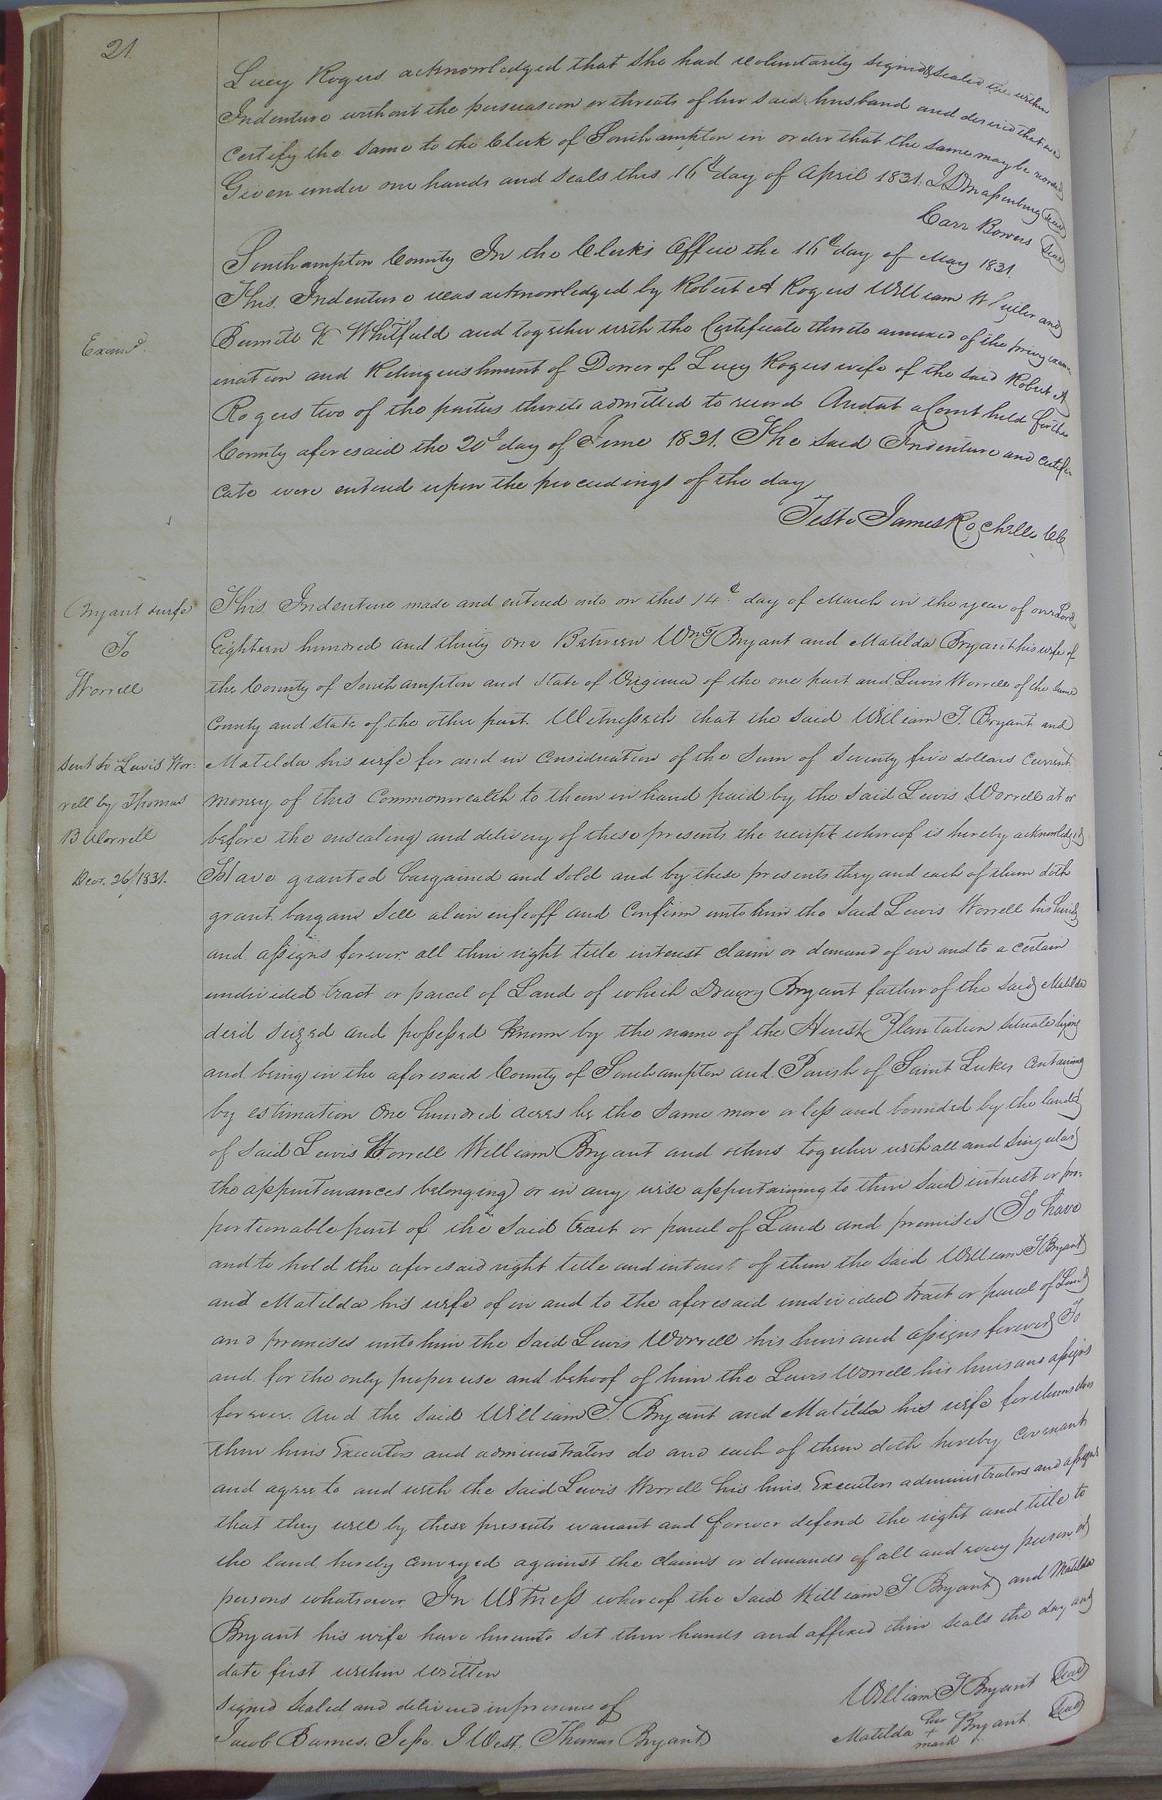 21
Lucy Rogers acknowledged that She had voluntarily signed & sealed the within
Indenture without the persuasion or threats of her said husband and desired that we
Certify the same to the Clerk of Southampton in order that the same may be recorded
Given under our hands and seals this 16th day of April 1831. Massenburg Seal
Carr Bowers Seal
Southampton County In the Clerks Office the 16th day of May 1831.
Examd.
This Indenture was acknowledged by Robert A Rogers William H and
K Whitfield and together with the Certificate thereto annexed of the privy exam
ination and Relinquishment of Dower of Lucy Rogers wife of the said Robert A
Rogers two of the parties thereto admitted to record And at a Court held for the
County aforesaid the 20th day of June 1831. The said Indenture and certifi
cate were entered upon the proceedings of the day
Teste James Rochelle CC
Bryant & wife
To
Worrell
Sent to Lewis Wor-
rell by Thomas
B Worrell
Decr. 26/1831.
This Indenture made and entered into on this 14th day of March in the year of our Lord
Eighteen hundred and thirty one Between Wm T Bryant and Matilda Bryant his wife of
the County of Southampton and State of Virginia of the one part and Lewis Worrell of the same
County and State of the other part. Witnesseth that the said William T. Bryant and
Matilda his wife for and in Consideration of the Sum of Seventy five dollars Current
money of this Commonwealth to them in hand paid by the said Lewis Worrell at or
before the ensealing and delivery of these presents the receipt whereof is hereby acknowledged
Have granted bargained and sold and by these presents they and each of them doth
grant bargain Sell alien enfeoff and Confirm unto him the said Lewis Worrell his heirs
and assigns forever all their right title interest claim or demand of in and to a certain
undivided tract or parcel of Land of which Drewry Bryant father of the said Matilda
died seized and possessed known by the name of the Plantation situate lying
and being in the aforesaid County of Southampton and Parish of Saint Lukes Containing
by estimation One hundred acres be the same more or less and bounded by the lands
of said Lewis Worrell William Bryant and others together with all and singular
the appurtenances belonging or in any wise appertaining to their said interest or pro-
portionable part of the said tract or parcel of Land and premises To have
and to hold the aforesaid right title and interest of them the said William T Bryant
and Matilda his wife of in and to the aforesaid undivided tract or parcel of Land
and premises unto him the said Lewis Worrell his heirs and assigns forever To
and for the only proper use and behoof of him the Lewis Worrell his heirs and assigns
forever. And the said William T. Bryant and Matilda his wife for themselves
their heirs Executors and administrators do and each of them doth hereby Covenant
and agree to and with the said Lewis Worrell his heirs Executors administrators and assigns
that they will by these presents warrant and forever defend the right and title to
the land hereby conveyed against the claims or demands of all and every person or
persons whatsoever. In Witness whereof the said William T Bryant and Matilda
Bryant his wife have hereunto set their hands and affixed their seals the day and
date first within written
Signed Sealed and delivered in presence of
William T Bryant Seal
Jacob Barnes. Jesse J West. Thomas Bryant
Matilda her + mark Bryant. Seal